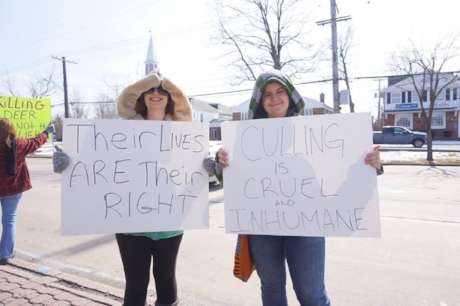 KILLING
DEER
Their Lives
ARE Their
RIGHT
CULLING
IS
CRUEL
AND
INHUMANE